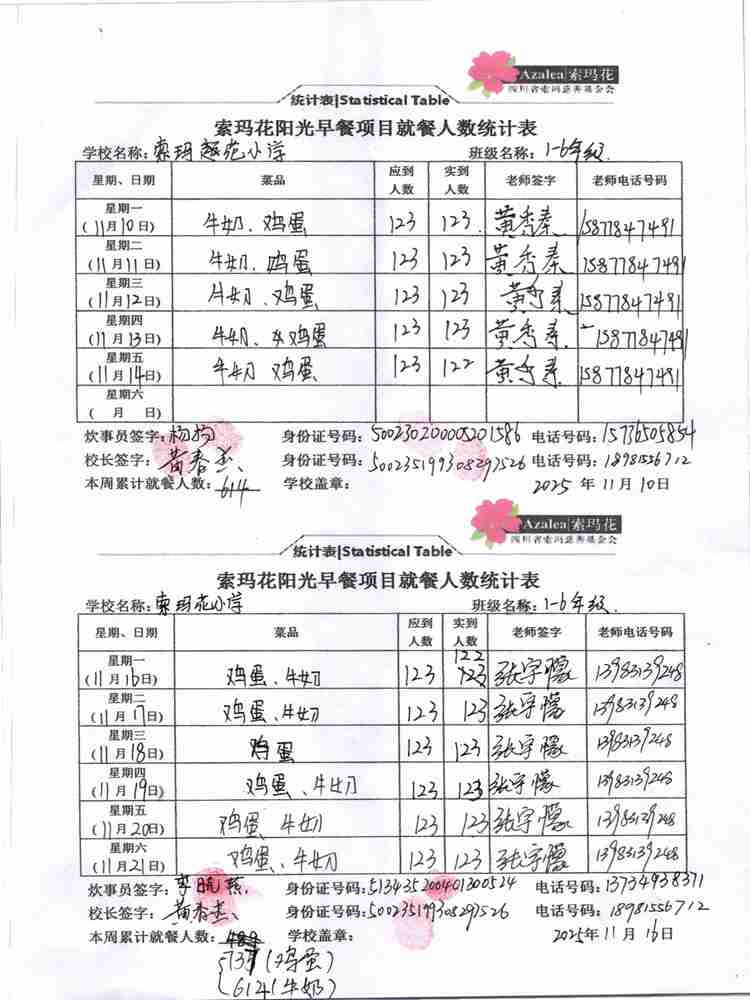 Azalea 索玛花
四川省索玛慈善基金会
统计表|Statistical Table
索玛花阳光早餐项目就餐人数统计表
学校名称：索玛花小学 班级名称：1-6年级
星期、日期 菜品 应到人数 实到人数 老师签字 老师电话号码
星期一（11月10日） 牛奶、鸡蛋 123 123 黄秀秦 15877847491
星期二（11月11日） 牛奶、鸡蛋 123 123 黄秀秦 15877847491
星期三（11月12日） 牛奶、鸡蛋 123 123 黄秀秦 15877847491
星期四（11月13日） 牛奶、鸡蛋 123 123 黄秀秦 15877847491
星期五（11月14日） 牛奶 鸡蛋 123 122 黄秀秦 15877847491
星期六（ 月 日）
炊事员签字：杨 身份证号码：500230200005201586 电话号码：15736505854
校长签字：黄春 身份证号码：500235199308297526 电话号码：18981556712
本周累计就餐人数：614 学校盖章： 2025年11月10日
Azalea 索玛花
四川省索玛慈善基金会
统计表|Statistical Table
索玛花阳光早餐项目就餐人数统计表
学校名称：索玛花小学 班级名称：1-6年级
星期、日期 菜品 应到人数 实到人数 老师签字 老师电话号码
星期一（11月16日） 鸡蛋、牛奶 123 122 123 张宇檬 13983139248
星期二（11月17日） 鸡蛋、牛奶 123 123 张宇檬 13983139248
星期三（11月18日） 鸡蛋 123 123 张宇檬 13983139248
星期四（11月19日） 鸡蛋、牛奶 123 123 张宇檬 13983139248
星期五（11月20日） 鸡蛋、牛奶 123 123 张宇檬 13983139248
星期六（11月21日） 鸡蛋、牛奶 123 123 张宇檬 13983139248
炊事员签字：李晓 身份证号码：513435200401300524 电话号码：13734938371
校长签字：黄春 身份证号码：500235199308297526 电话号码：18981556712
本周累计就餐人数： 学校盖章： 2025年11月16日
737（鸡蛋）
614（牛奶）